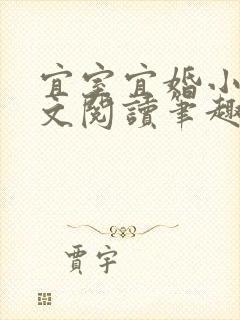 宜室宜婚小
文閱讀筆趣
賈宇